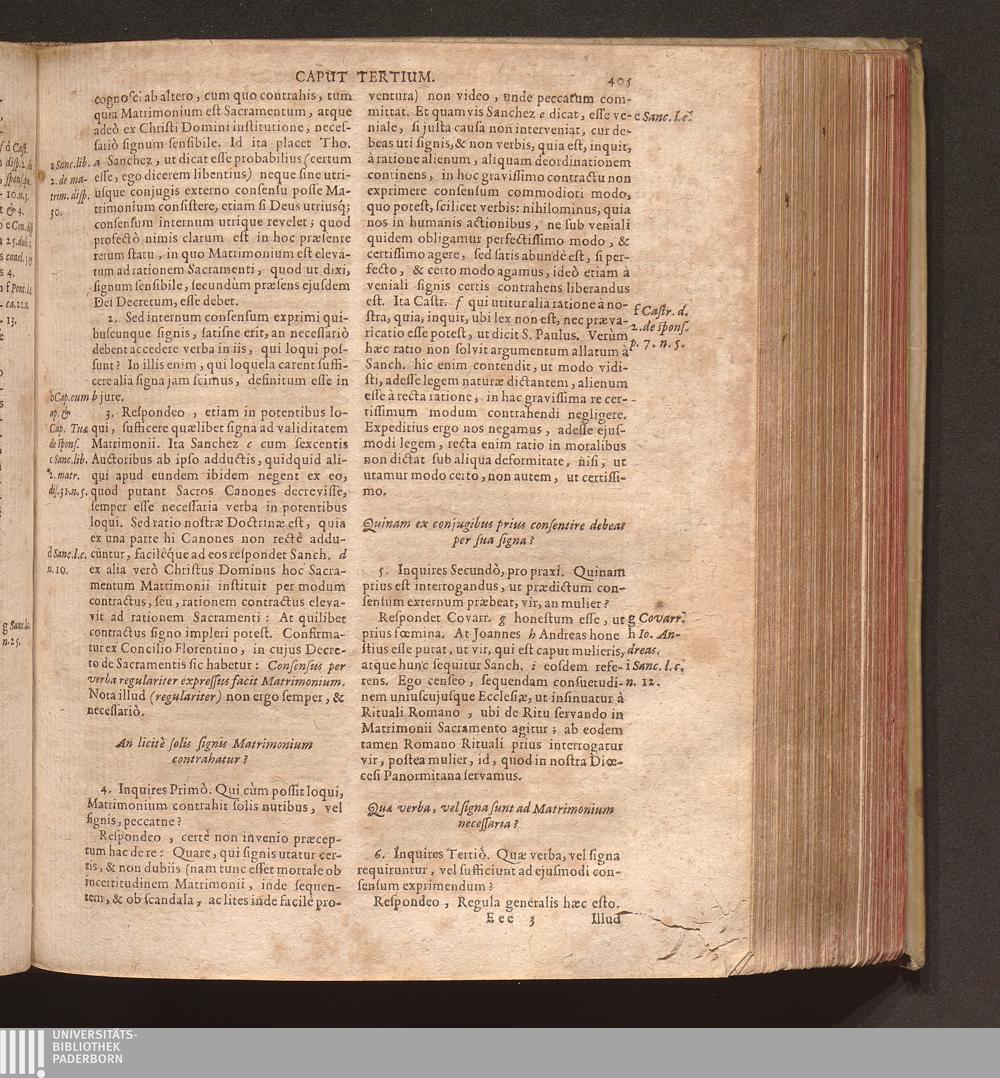 CAPUT TERTIUM.
405
cognosci ab altero, cum quo contrahis, tum
quia Matrimonium est Sacramentum, atque
adeò ex Christi Domini institutione, neces-
sariò signum sensibile. Id ita placet Tho.
a Sanchez, ut dicat esse probabilius (certum
esse, ego dicerem libentius) neque sine utri-
usque conjugis externo consensu posse Ma-
trimonium consistere, etiam si Deus utriusq;
consensum internum utrique revelet; quod
profectò nimis clarum est in hoc præsente
rerum statu, in quo Matrimonium est eleva-
tum ad rationem Sacramenti, quod ut dixi,
signum sensibile, secundùm præsens ejusdem
Dei Decretum, esse debet.
2. Sed internum consensum exprimi qui-
buscunque signis, satisne erit, an necessariò
debent accedere verba in iis, qui loqui pos-
sunt? In illis enim, qui loquela carent suffi-
cere alia signa jam scimus, definitum esse in
b jure.
3. Respondeo, etiam in potentibus lo-
qui, sufficere quælibet signa ad validitatem
Matrimonii. Ita Sanchez c cum sexcentis
Auctoribus ab ipso adductis, quidquid ali-
qui apud eundem ibidem negent ex eo,
quod putant Sacros Canones decrevisse,
semper esse necessaria verba in potentibus
loqui. Sed ratio nostræ Doctrinæ est, quia
ex una parte hi Canones non rectè addu-
cuntur, facilèque ad eos respondet Sanch. d
ex alia verò Christus Dominus hoc Sacra-
mentum Matrimonii instituit per modum
contractus, seu, rationem contractus eleva-
vit ad rationem Sacramenti: At quilibet
contractus signo impleri potest. Confirma-
tur ex Concilio Florentino, in cujus Decre-
to de Sacramentis sic habetur: Consensus per
verba regulariter expressus facit Matrimonium.
Nota illud (regulariter) non ergo semper, &
necessariò.
An licitè solis signis Matrimonium
contrahatur?
4. Inquires Primò. Qui cùm possit loqui,
Matrimonium contrahit solis nutibus, vel
signis, peccatne?
Respondeo, certè non invenio præcep-
tum hac de re: Quare, qui signis utatur cer-
tis, & non dubiis (nam tunc esset mortale ob
incertitudinem Matrimonii, inde sequen-
tem, & ob scandala, ac lites inde facilè pro-
a Sanc. lib.
2. de ma-
trim. disp.
30.
b Cap. cum
ap. &
Cap. Tuæ
de spons.
c Sanc. lib.
2. matr.
dis. 31. n. 5.
d Sanc. l. c.
n. 10.
ventura) non video, unde peccatum com-
mittat. Et quamvis Sanchez e dicat, esse ve-
niale, si justa causa non interveniat, cur de-
beas uti signis, & non verbis, quia est, inquit,
à ratione alienum, aliquam deordinationem
continens, in hoc gravissimo contractu non
exprimere consensum commodiori modo,
quo potest, scilicet verbis: nihilominus, quia
nos in humanis actionibus, ne sub veniali
quidem obligamur perfectissimo modo, &
certissimo agere, sed satis abundè est, si per-
fecto, & certo modo agamus, ideò etiam à
veniali signis certis contrahens liberandus
est. Ita Castr. f qui utitur alia ratione à no-
stra, quia, inquit, ubi lex non est, nec præva-
ricatio esse potest, ut dicit S. Paulus. Verùm
hæc ratio non solvit argumentum allatum à
Sanch. hic enim contendit, ut modo vidi-
sti, adesse legem naturæ dictantem, alienum
esse à recta ratione, in hac gravissima re cer-
tissimum modum contrahendi negligere.
Expeditius ergo nos negamus, adesse ejus-
modi legem, recta enim ratio in moralibus
non dictat sub aliqua deformitate, nisi, ut
utamur modo certo, non autem, ut certissi-
mo.
Quinam ex conjugibus prius consentire debeat
per sua signa?
5. Inquires Secundò, pro praxi. Quinam
prius est interrogandus, ut prædictum con-
sensum externum præbeat, vir, an mulier?
Respondet Covarr. g honestum esse, ut
prius fœmina. At Joannes h Andreas hone
stius esse putat, ut vir, qui est caput mulieris,
atque hunc sequitur Sanch. i eosdem refe-
rens. Ego censeo, sequendam consuetudi-
nem uniuscujusque Ecclesiæ, ut insinuatur à
Rituali Romano, ubi de Ritu servando in
Matrimonii Sacramento agitur; ab eodem
tamen Romano Rituali prius interrogatur
vir, postea mulier, id, quod in nostra Diœ-
cesi Panormitana servamus.
Quæ verba, vel signa sunt ad Matrimonium
necessaria?
6. Inquires Tertiò. Quæ verba, vel signa
requiruntur, vel sufficiunt ad ejusmodi con-
sensum exprimendum?
Respondeo, Regula generalis hæc esto.
Eee 3
Illud
e Sanc. l. c.
f Castr. d.
2. de spons.
p. 7. n. 5.
g Covarr.
h Io. An-
dreas.
i Sanc. l. c.
n. 12.
UNIVERSITÄTS-
BIBLIOTHEK
PADERBORN